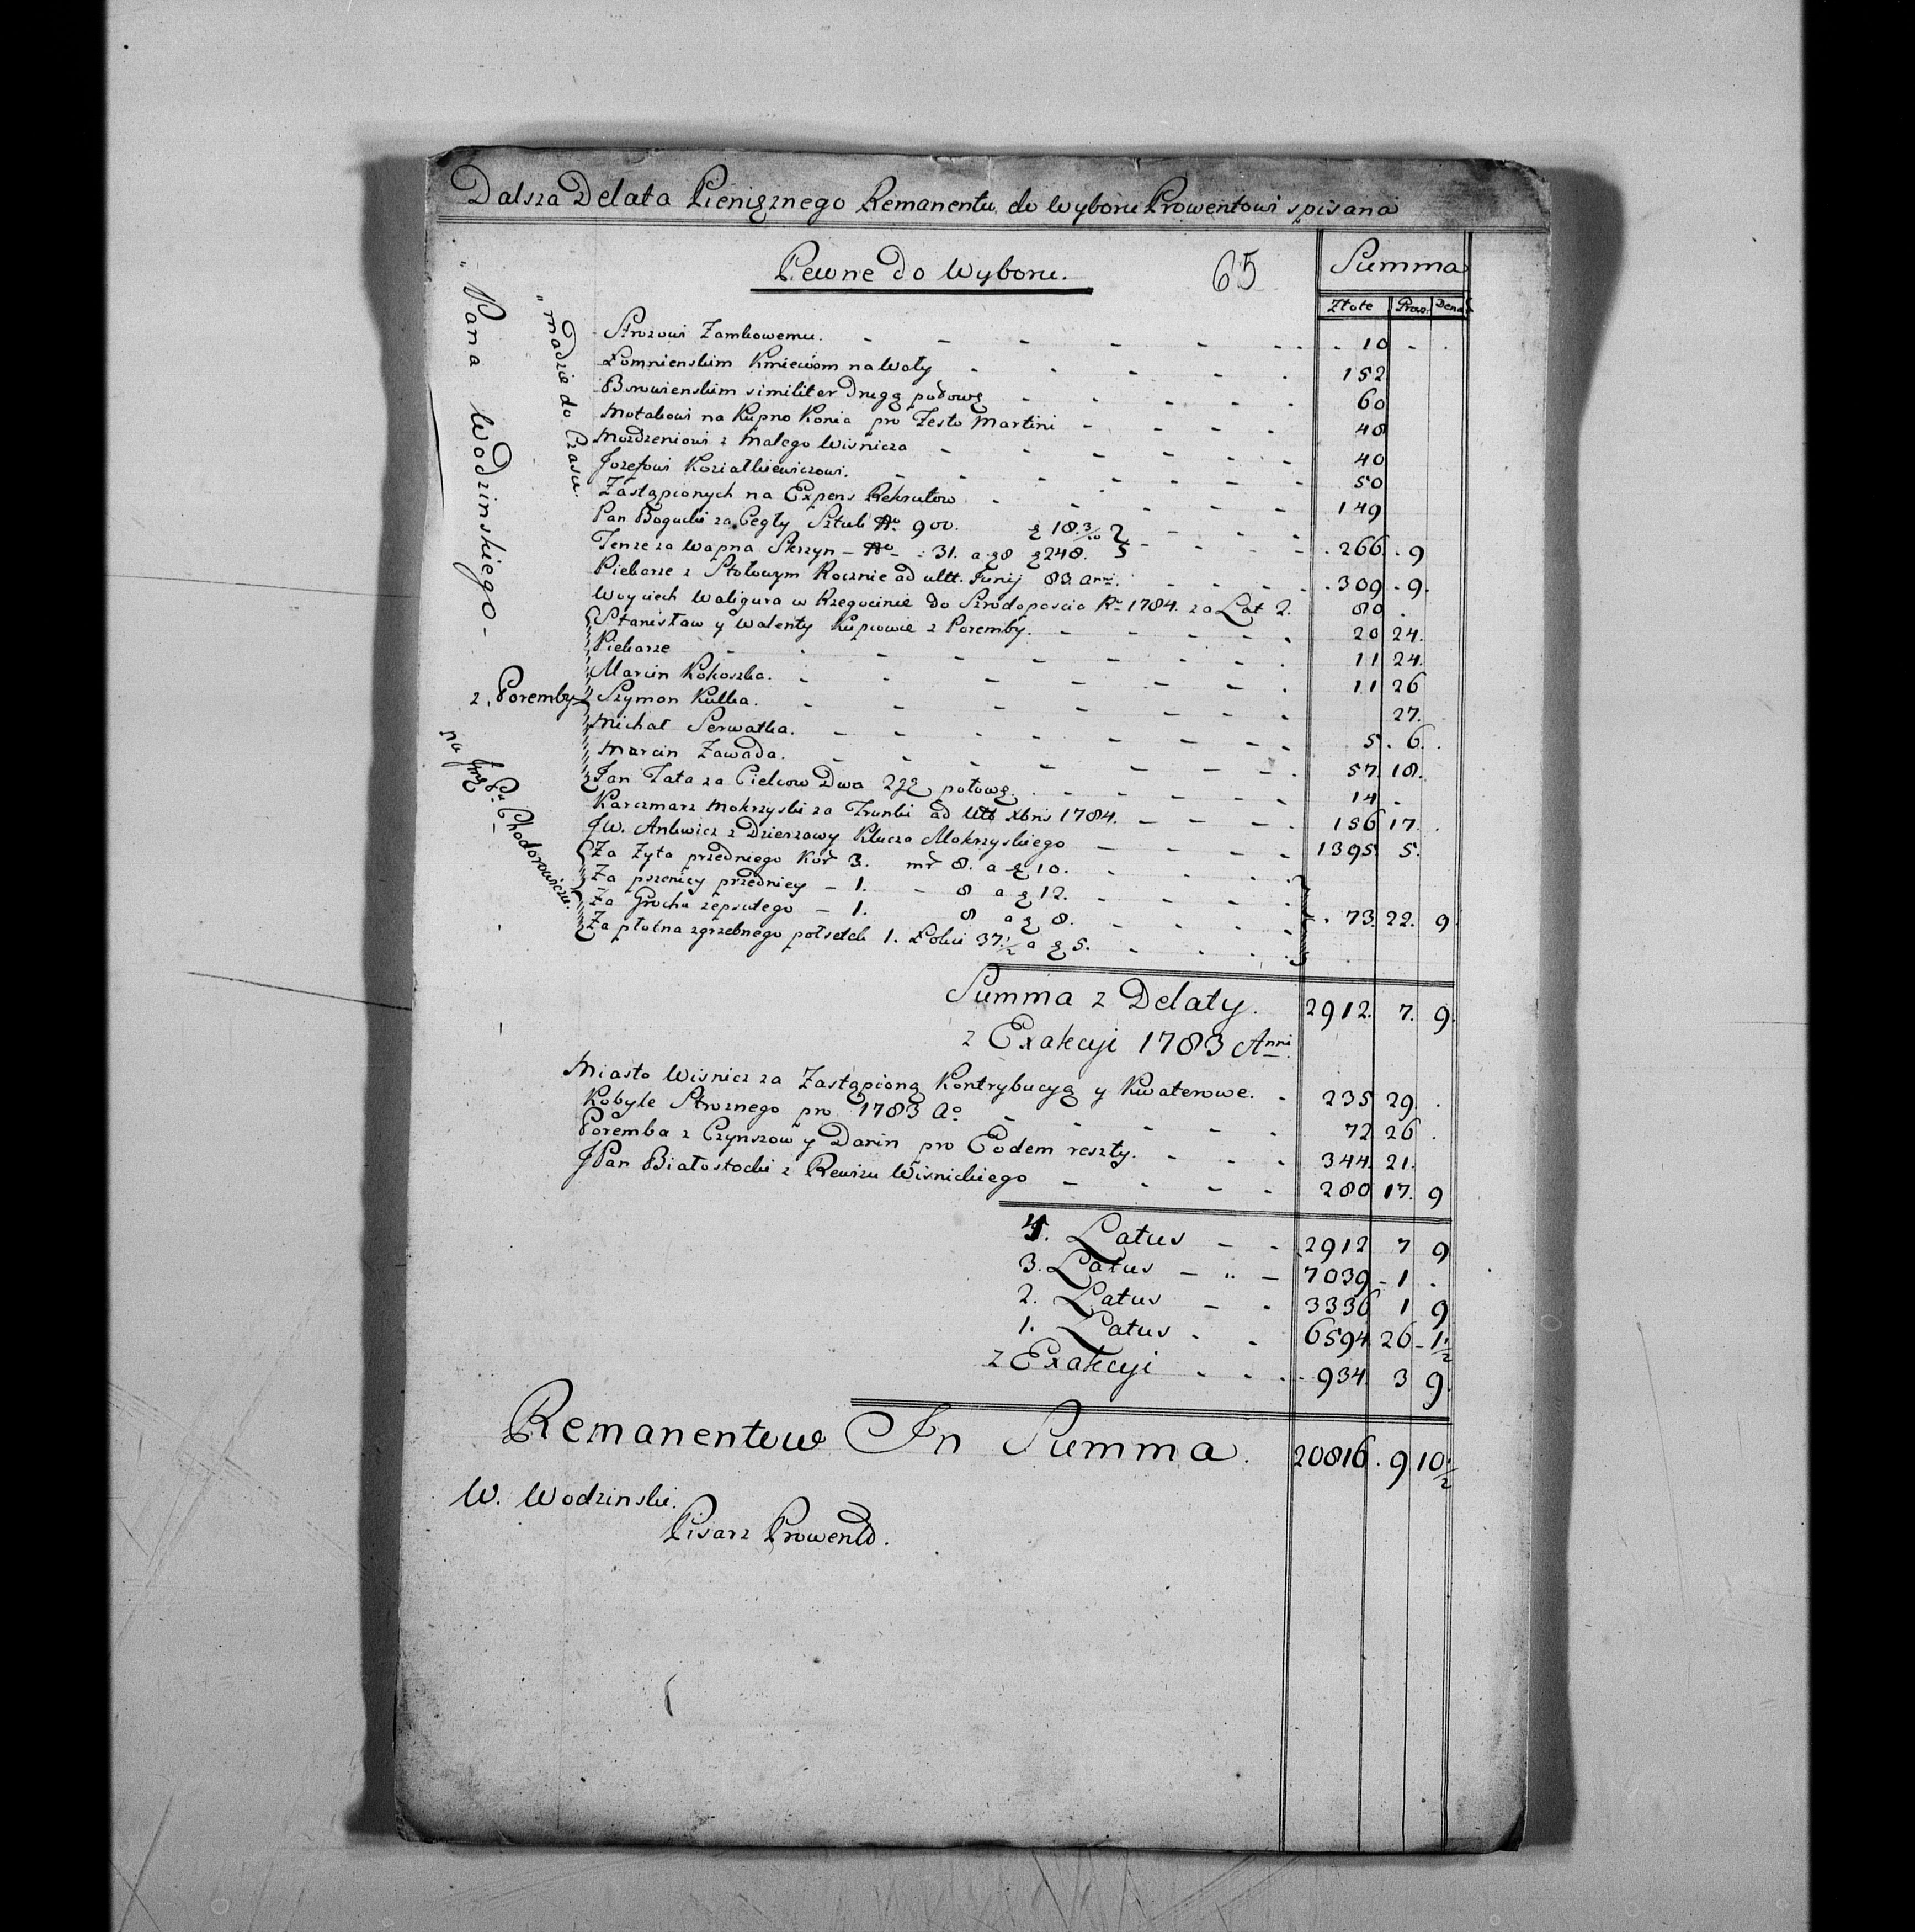 Dalsza Delata Pieniężnego Remanentu do wyboru Prowentowi spisana
Pewne do Wyboru.
65
Summa
Złote Grosz Dena
Pana Wodzinskiego
do Czasu.
Strozowi Zamkowemu. 10
Łomnienskim Kmieciom na Woły 152
similiter Drugą połową 60
Motakowi na Kupno Konia pro Festo Martini 48
Mozdzeniowi z Małego Wisnicza 40
Jozefowi Koziałkiewiczowi. 50
Zastąpionych na Expens Rekrutow 149
Pan Bogucki za Cegły Sztuk No 900. ƶ 18.3/20
Tenze za wapna Skrzyn No 31. a ƶ 8 ƶ 248. 266. 9
Piekarze z Stołowym Rocznie ad ultt. Junij 83. Anni. 309. 9.
Woyciech Waligura w Rzegocinie do Szrodoposcia Ru 1784. za Lat 2. 80
Stanisław y Walenty Kupcowie z Poremby. 20 24.
Piekarze 11 24.
Marcin Kokoszka. 11 26
z Poremby
Szymon Kulka. 27.
Michał Serwatka. 5. 6.
Marcin Zawada. 57. 18.
Jan Tata za Cielcow Dwa 2gą połową. 14
Karczmarz Mokrzyski za Trunki ad Ult Xbris 1784. 156 17.
JW. Ankwicz z Dzierzawy Klucza Mokrzyskiego 1395 5.
na Jmę Pa Chodorowicza.
Za Zyta przedniego Kor 3. mr 8. a ƶ 10.
Za pszenicy przedniey – 1. – 8 a ƶ 12.
Za Grochu zepsutego – 1. 8 a ƶ 8. 73. 22. 9
Za płotna zgrzebnego połsetek 1. Łokci 37 1/2 a ƶ 5.
Summa z Delaty. 2912. 7. 9.
z Exakcyi 1783 Anni.
Miasto Wisnicz za Zastąpioną Kontrybucyą y Kwaterowe. 235 29.
Kobyle Stroznego pro 1783 Ao 72 26
Poremba z Czynszow y Danin pro Eodem reszty. 344. 21.
JPan Białostocki z Rewizu Wisnickiego 280 17. 9
4. Latus 2912 7 9
3. Latus 7039 1
2. Latus 3336 1 9
1. Latus 6594 26 1 1/2
z Exakcyi 934. 3 9.
Remanentow In Summa. 20816. 9 10 1/2
W. Wodzinski.
Pisarz Prowento.